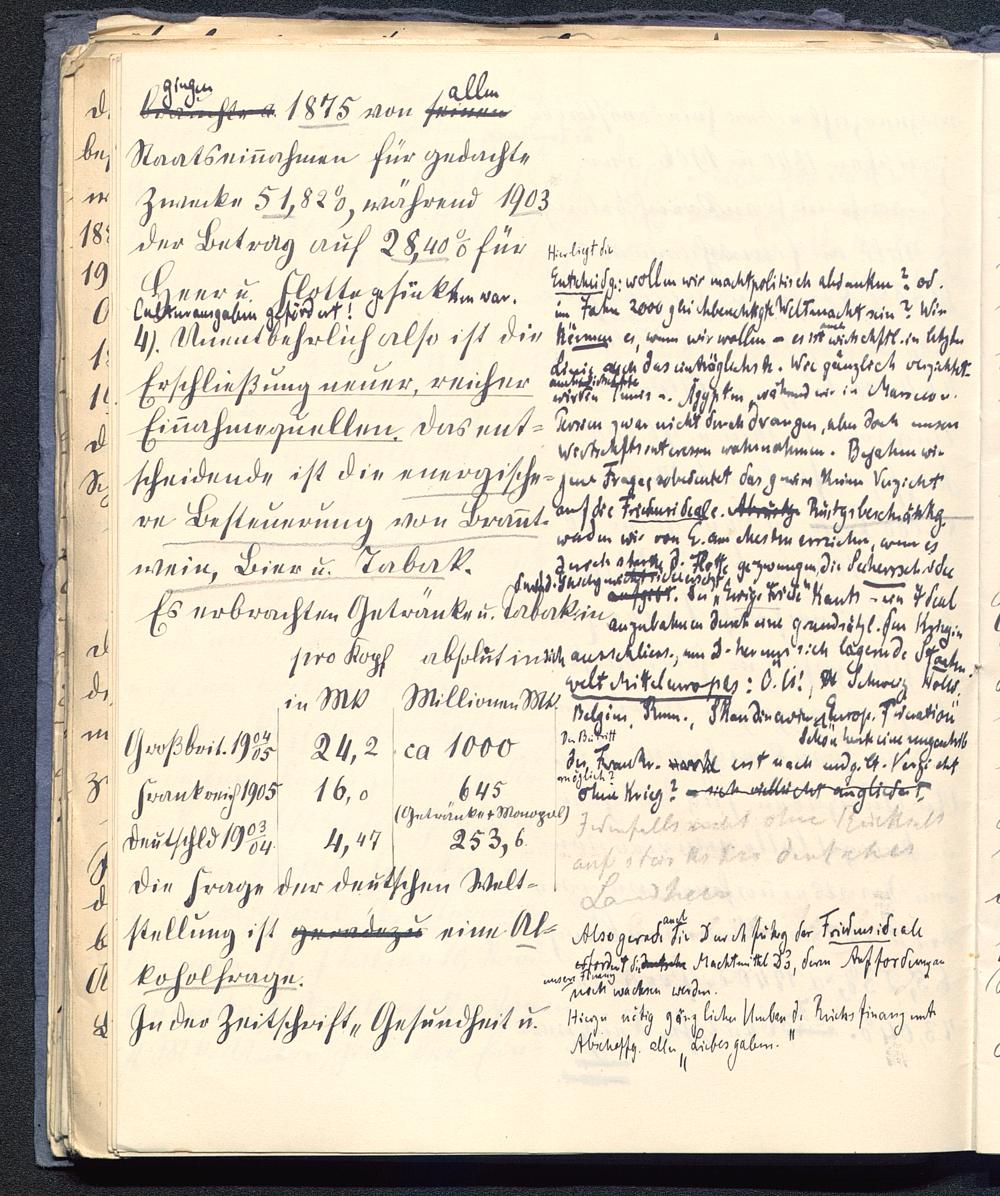 gingen allen
brauchte a. 1875 von seinen
Staatseinnahmen für gedachte
Zwecke 51,82%, während 1903
der Betrag auf 28,40% für
Heer u. Flotte gesunken war.
Culturausgaben gefördert!
4). Unentbehrlich also ist die
Erschließung neuer, reicher
Einnahmequellen. Das ent=
scheidende ist die energische=
re Besteuerung von Brannt-
wein, Bier u. Tabak.
Es erbrachten Getränke u. Tabak in
pro Kopf absolut in
in Mk Millionen Mk.
Großbrit. 1904/05 24,2 ca 1000
Frankreich 1905 16,0 645
(Getränke + Monopol)
Deutschld 1903/04 4,47 253,6
Die Frage der deutschen Welt=
stellung ist geradezu eine Al=
koholfrage.
In der Zeitschrift „Gesundheit u.
Hier liegt die
Entscheidg: wollen wir machtpolitisch abdanken? od.
im Jahre 2000 gleichberechtigte Weltmacht sein? Wir
können es, wenn wir wollen – es ist auch wirtschaftl. in letzter
Linie auch das einträglichste. Wie gänzlich verzichtet
Tunis u. Ägypten, während wir in Marocco u.
Persien zwar nicht durchdrangen, aber doch unsere
Wirtschaftsinteressen wahrnahmen. Bejahen wir
jene Frage, so bedeutet das gewiss keinen Verzicht
auf die Friedensideale. Abrüstg Rüstgsbeschränkg
werden wir von E. am ehesten erreichen, wenn es
durch starke d. Flotte gezwungen, die Seeherrschaft
aufgibt. Der „Ewige Friede" Kants – ein Ideal
anzubahnen durch eine grundsätzl. den Krieg in
sich ausschliess., um D. herum sich lagernde Staaten-
welt Mitteleuropas: Ö. U., Schweiz, Holld,
Belgien, Rum., Skandinavien „Europ. Föderation"
Der Beitritt
der Frankr. erst nach endgilt. Verzicht
möglich?
ohne Krieg? sich vielleicht angliedert,
Jedenfalls nicht ohne Rückhalt
auf starkes deutsches
Landheer
Also gerade auch die Durchführg der Friedensideale
erfordert die deutsche Machtmittel D's, deren Anforderungen
unsere Finanz
noch wachsen werden.
Hierzu nötig gänzlicher Umbau d. Reichsfinanz mit
Abschaffg. aller „Liebesgaben."